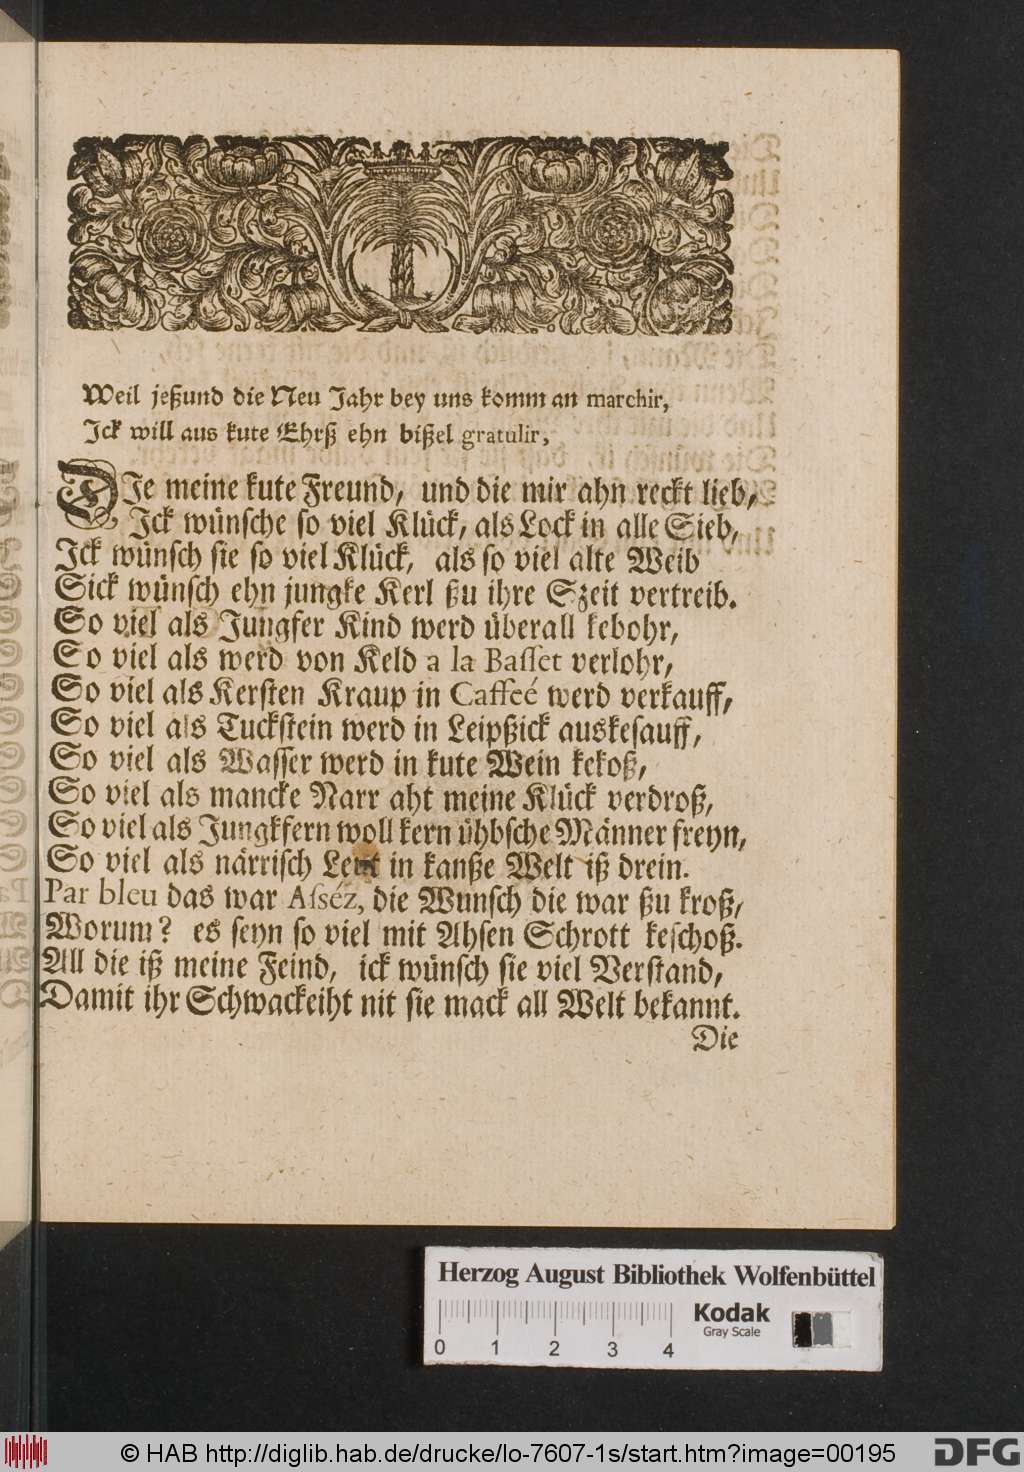 Weil jeßund die Neu Jahr bey uns komm an marchir,
Ick will aus kute Ehrß ehn bißel gratulir,
DIe meine kute Freund, und die mir ahn reckt lieb,
Ick wünsche so viel Klück, als Lock in alle Sieb,
Ick wünsch sie so viel Klück, als so viel alte Weib
Sick wünsch ehn jungke Kerl ßu ihre Szeit vertreib.
So viel als Jungfer Kind werd überall kebohr,
So viel als werd von Keld a la Basset verlohr,
So viel als Kersten Kraup in Caffeé werd verkauff,
So viel als Tuckstein werd in Leipßick auskesauff,
So viel als Wasser werd in kute Wein kekoß,
So viel als mancke Narr aht meine Klück verdroß,
So viel als Jungkfern woll kern ühbsche Männer freyn,
So viel als närrisch Leut in kanße Welt iß drein.
Par bleu das war Asséz, die Wunsch die war ßu kroß,
Worum? es seyn so viel mit Ahsen Schrott keschoß.
All die iß meine Feind, ick wünsch sie viel Verstand,
Damit ihr Schwackeiht nit sie mack all Welt bekannt.
Die
Herzog August Bibliothek Wolfenbüttel
Kodak
Gray Scale
0 1 2 3 4
© HAB http://diglib.hab.de/drucke/lo-7607-1s/start.htm?image=00195
DFG